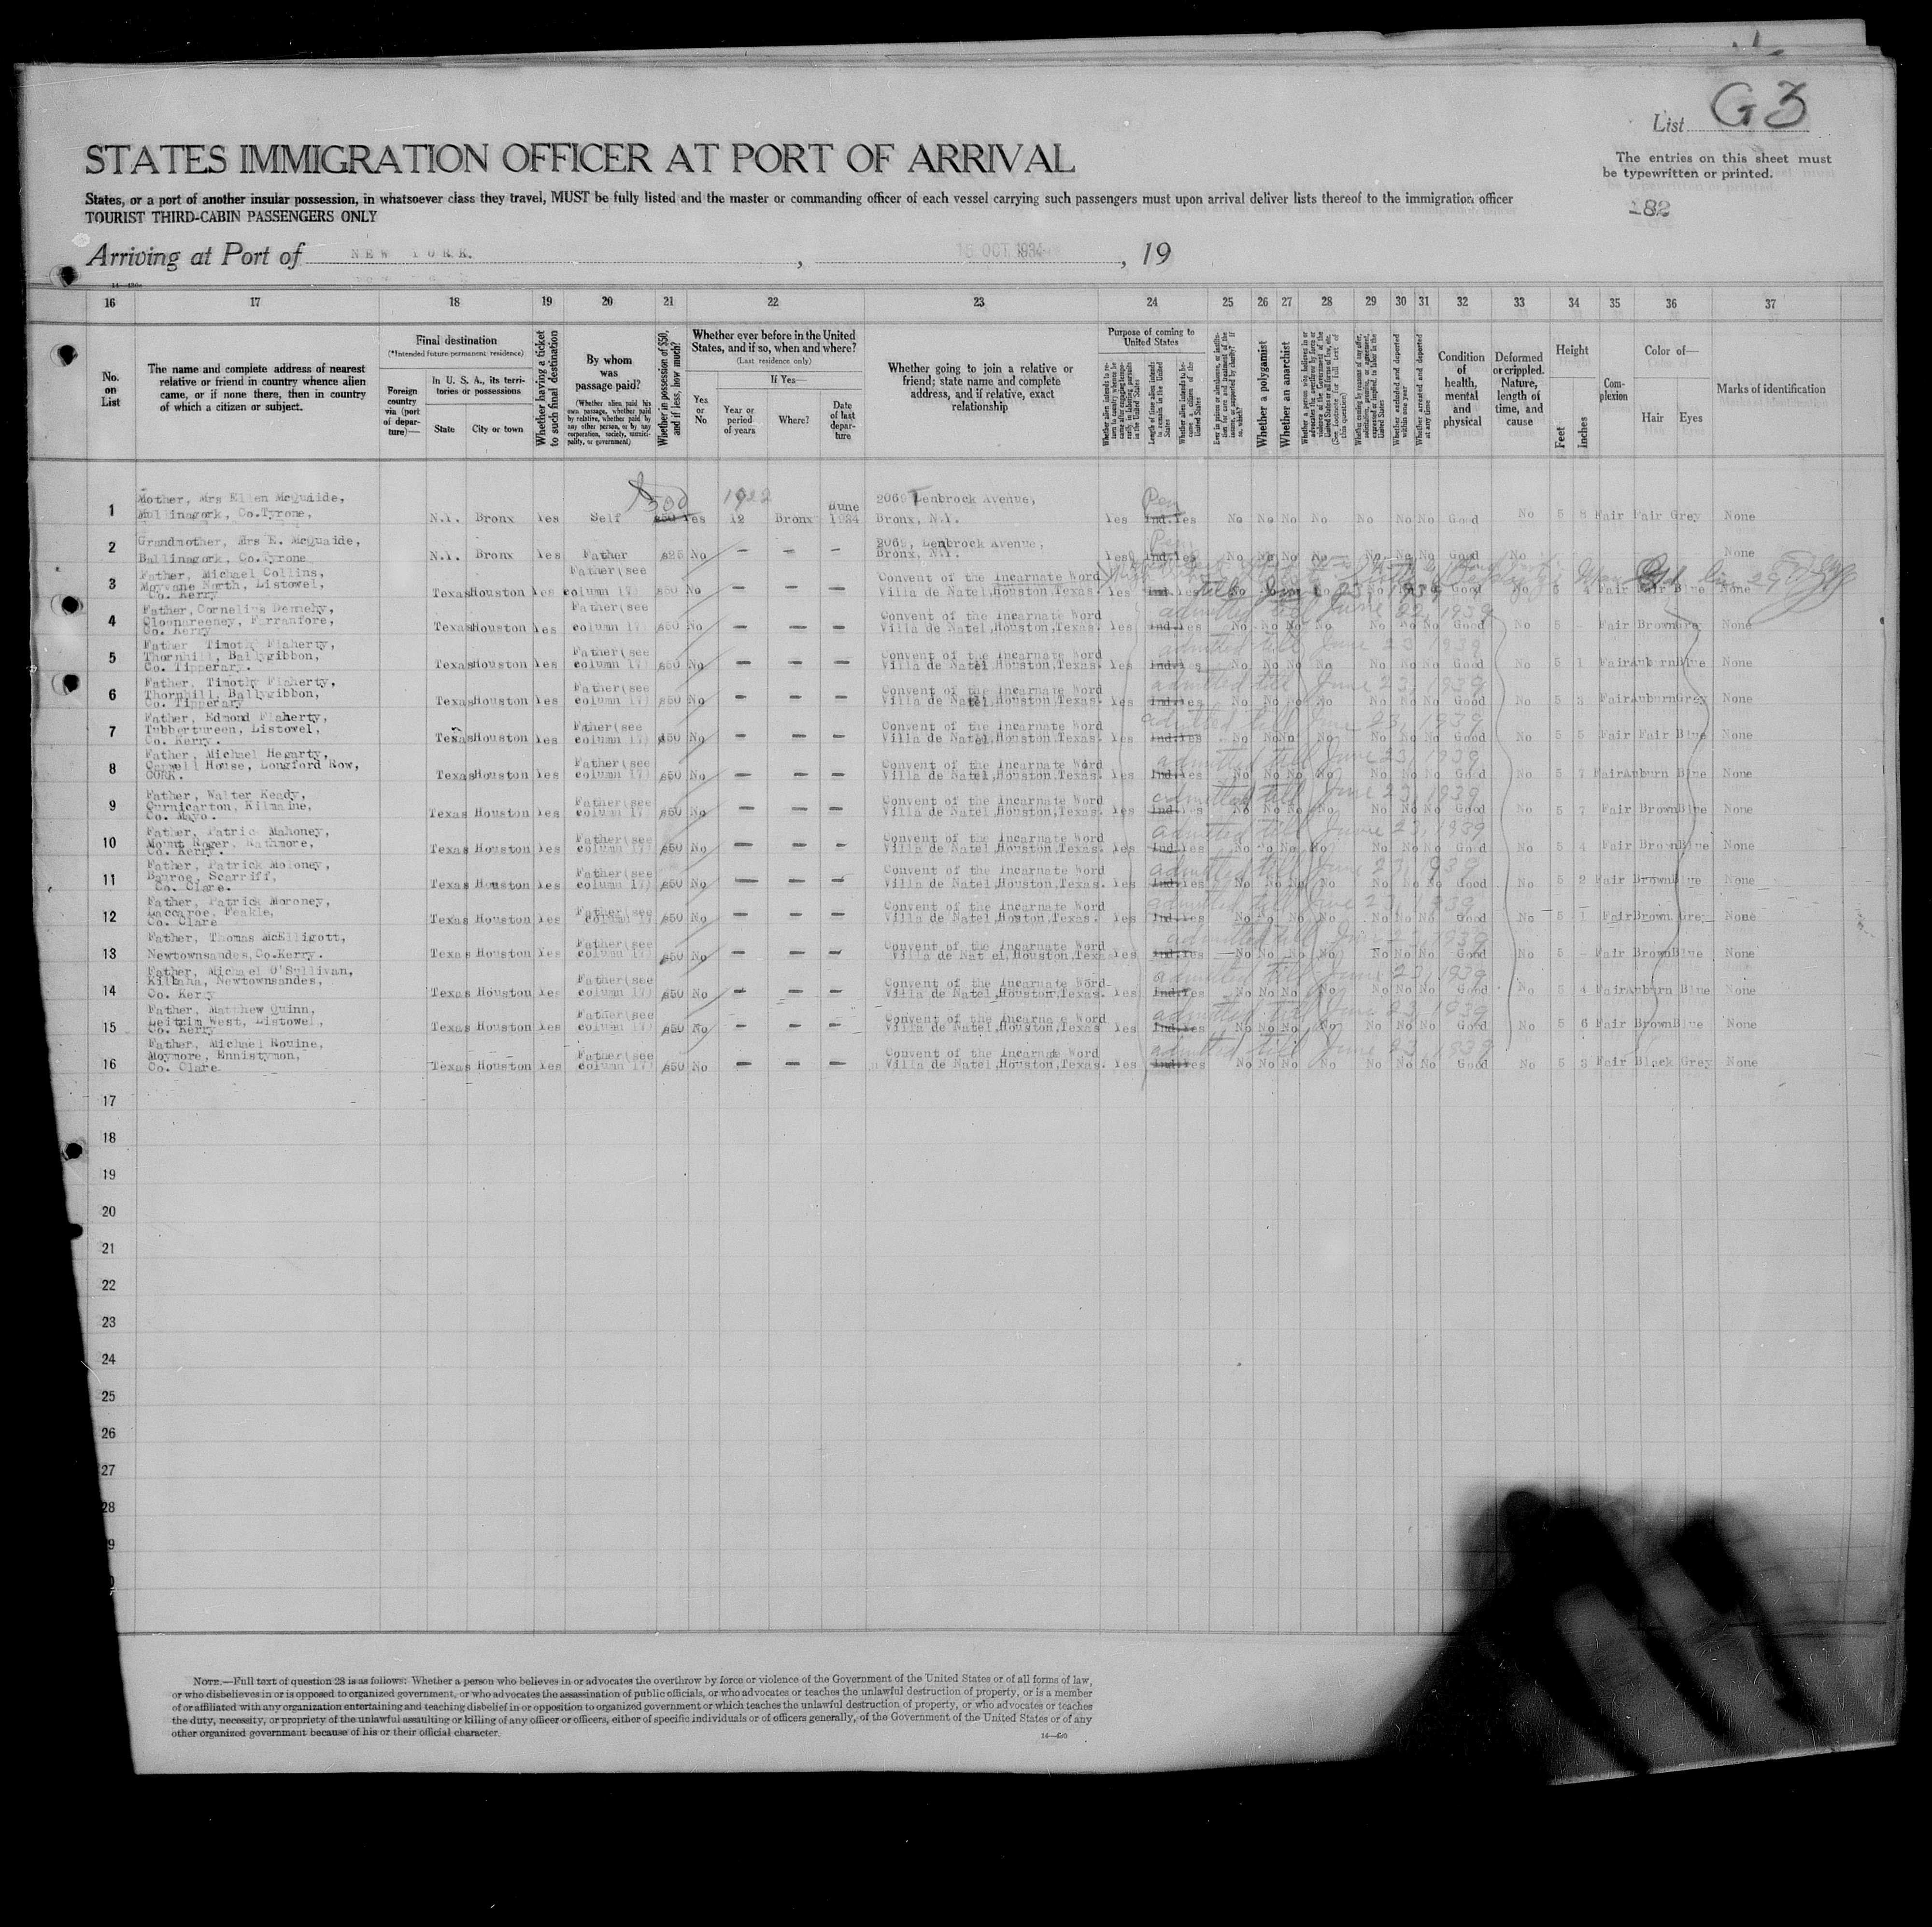 List G3
STATES IMMIGRATION OFFICER AT PORT OF ARRIVAL
The entries on this sheet must
be typewritten or printed.
States, or a port of another insular possession, in whatsoever class they travel, MUST be fully listed and the master or commanding officer of each vessel carrying such passengers must upon arrival deliver lists thereof to the immigration officer
TOURIST THIRD-CABIN PASSENGERS ONLY
182
Arriving at Port of NEW YORK. , 15 OCT 1934 , 19
16 17 18 19 20 21 22 23 24 25 26 27 28 29 30 31 32 33 34 35 36 37
No. on List
The name and complete address of nearest
relative or friend in country whence alien
came, or if none there, then in country
of which a citizen or subject.
Final destination
(*Intended future permanent residence)
Foreign country via (port of departure)—
In U. S. A., its territories or possessions
State City or town
Whether having a ticket to such final destination
By whom was passage paid?
(Whether alien paid his own passage, whether paid by relative, whether paid by any other person, or by any corporation, society, municipality, or government)
Whether in possession of $50, and if less, how much?
Whether ever before in the United States, and if so, when and where?
(Last residence only)
If Yes—
Yes or No
Year or period of years
Where?
Date of last departure
Whether going to join a relative or
friend; state name and complete
address, and if relative, exact
relationship
Purpose of coming to United States
Whether a polygamist
Whether an anarchist
Whether excluded and deported within one year
Whether arrested and deported at any time
Condition of health, mental and physical
Deformed or crippled. Nature, length of time, and cause
Height
Feet Inches
Complexion
Color of—
Hair Eyes
Marks of identification
1 Mother, Mrs Ellen McQuaide,
Co.Tyrone, N.Y. Bronx Yes Self $500 Yes 1922 12 Bronx June 1934 Bronx, N.Y. Yes Ind. Yes No No No No No No No Good No 5 8 Fair Fair Grey None
2 Grandmother, Mrs E. McQuaide,
Ballinagork, Co.Tyrone N.Y. Bronx Yes Father $25 No – – – 2069, Lenbrock Avenue, Bronx, N.Y. Yes Ind. Yes No No No No No No No Good No None
3 Father, Michael Collins,
Moyvane North, Listowel,
Co. Kerry Texas Houston Yes Father(see column 17) $50 No – – – Convent of the Incarnate Word Villa de Natel,Houston,Texas. Yes Ind. Yes till June 23 1939 Good No 5 4 Fair Fair Blue None
4 Father,Cornelius Dennehy,
Cloonareeney, Farranfore,
Co. Kerry Texas Houston Yes Father(see column 17) $50 No – – – Convent of the Incarnate Word Villa de Natel,Houston,Texas. Yes Ind. Yes admitted till June 22, 1939 No No No No No No No Good No 5 - Fair Brown Grey None
5 Father Timothy Flaherty,
Thornhill, Ballygibbon,
Co. Tipperary. Texas Houston Yes Father(see column 17) $50 No – – – Convent of the Incarnate Word Villa de Natel,Houston,Texas. Yes Ind. Yes admitted till June 23 1939 No No No No No No No Good No 5 1 Fair Auburn Blue None
6 Father, Timothy Flaherty,
Thornhill, Ballygibbon,
Co. Tipperary Texas Houston Yes Father(see column 17) $50 No – – – Convent of the Incarnate Word Villa de Natel,Houston,Texas. Yes Ind. Yes admitted till June 23, 1939 No No No No No No No Good No 5 3 Fair Auburn Grey None
7 Father, Edmond Flaherty,
Tubbertureen, Listowel,
Co. Kerry. Texas Houston Yes Father(see column 17) $50 No – – – Convent of the Incarnate Word Villa de Natel,Houston,Texas. Yes Ind. Yes admitted till June 23, 1939 No No No No No No No Good No 5 5 Fair Fair Blue None
8 Father, Michael Hegarty,
House, Longford Row,
CORK. Texas Houston Yes Father(see column 17) $50 No – – – Convent of the Incarnate Word Villa de Natel,Houston,Texas. Yes Ind. Yes admitted till June 23, 1939 No No No No No No No Good No 5 7 Fair Auburn Blue None
9 Father, Walter Keady,
Curnicarton, Kilmaine,
Co. Mayo. Texas Houston Yes Father(see column 17) $50 No – – – Convent of the Incarnate Word Villa de Natel,Houston,Texas. Yes Ind. Yes admitted till June 23, 1939 No No No No No No No Good No 5 7 Fair Brown Blue None
10 Father, Patric Mahoney,
Mount Roger, Rathmore,
Co. Kerry. Texas Houston Yes Father(see column 17) $50 No – – – Convent of the Incarnate Word Villa de Natel,Houston,Texas. Yes Ind. Yes admitted till June 23, 1939 No No No No No No No Good No 5 4 Fair Brown Blue None
11 Father, Patrick Moloney,
Scarriff,
Co. Clare. Texas Houston Yes Father(see column 17) $50 No – – – Convent of the Incarnate Word Villa de Natel,Houston,Texas. Yes Ind. Yes admitted till June 23, 1939 No No No No No No No Good No 5 2 Fair Brown Blue None
12 Father, Patrick Moroney,
Laccaroe, Feakle,
Co. Clare Texas Houston Yes Father(see column 17) $50 No – – – Convent of the Incarnate Word Villa de Natel,Houston,Texas. Yes Ind. Yes admitted till June 23, 1939 No No No No No No No Good No 5 1 Fair Brown Grey None
13 Father, Thomas McElligott,
Newtownsandes,Co.Kerry. Texas Houston Yes Father(see column 17) $50 No – – – Convent of the Incarnate Word Villa de Natel,Houston,Texas Ind. Yes admitted till June 23, 1939 No No No No No No No Good No 5 - Fair Brown Blue None
14 Father, Michael O'Sullivan,
Kilbaha, Newtownsandes,
Co. Kerry Texas Houston Yes Father(see column 17) $50 No – – – Convent of the Incarnate Word Villa de Natel,Houston,Texas. Yes Ind. Yes admitted till June 23, 1939 No No No No No No No Good No 5 4 Fair Auburn Blue None
15 Father, Matthew Quinn,
Leitrim West, Listowel,
Co. Kerry Texas Houston Yes Father(see column 17) $50 No – – – Convent of the Incarnate Word Villa de Natel,Houston,Texas Yes Ind. Yes admitted till June 23, 1939 No No No No No No No Good No 5 6 Fair Brown Blue None
16 Father, Michael Rouine,
Moymore, Ennistymon,
Co. Clare Texas Houston Yes Father(see column 17) $50 No – – – Convent of the Incarnate Word Villa de Natel,Houston,Texas. Yes Ind. Yes admitted till June 23, 1939 No No No No No No No Good No 5 3 Fair Black Grey None
17
18
19
20
21
22
23
24
25
26
27
28
9
NOTE.—Full text of question 28 is as follows: Whether a person who believes in or advocates the overthrow by force or violence of the Government of the United States or of all forms of law,
or who disbelieves in or is opposed to organized government, or who advocates the assassination of public officials, or who advocates or teaches the unlawful destruction of property, or is a member
of or affiliated with any organization entertaining and teaching disbelief in or opposition to organized government or which teaches the unlawful destruction of property, or who advocates or teaches
the duty, necessity, or propriety of the unlawful assaulting or killing of any officer or officers, either of specific individuals or of officers generally, of the Government of the United States or of any
other organized government because of his or their official character.